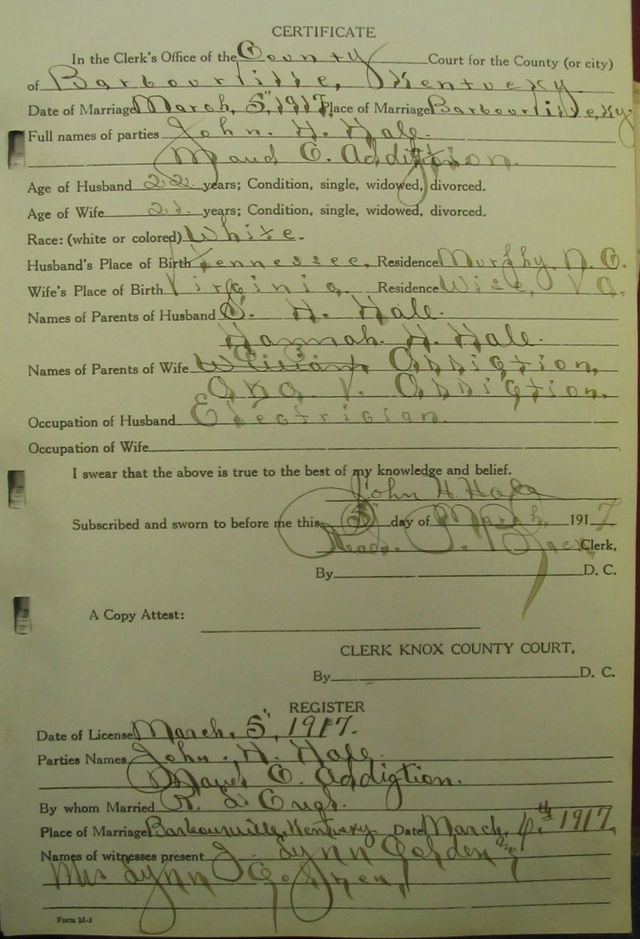 CERTIFICATE
In the Clerk's Office of the County Court for the County (or city)
of Barbourville, Kentucky
Date of Marriage March, 5", 1917, Place of Marriage Barbourville, Ky.
Full names of parties John. H. Hale.
Maud C. Addigtion.
Age of Husband 22 years; Condition, single, widowed, divorced.
Age of Wife 21. years; Condition, single, widowed, divorced.
Race: (white or colored) White.
Husband's Place of Birth Tennessee, Residence Murphy, N. C.
Wife's Place of Birth Virginia, Residence Wise, Va.
Names of Parents of Husband S. H. Hale.
Hannah. H. Hale.
Names of Parents of Wife Addigtion,
V. Addigtion.
Occupation of Husband Electrician.
Occupation of Wife
I swear that the above is true to the best of my knowledge and belief.
John H. Hale
Subscribed and sworn to before me this 5" day of March, 1917
Read. Clerk,
By D. C.
A Copy Attest:
CLERK KNOX COUNTY COURT,
By D. C.
REGISTER
Date of License March, 5", 1917.
Parties Names John. H. Hale.
C. Addigtion.
By whom Married R.
Place of Marriage Barbourville, Kentucky Date March, th 1917,
Names of witnesses present J. Lynn
Mrs Lynn
Form M-3